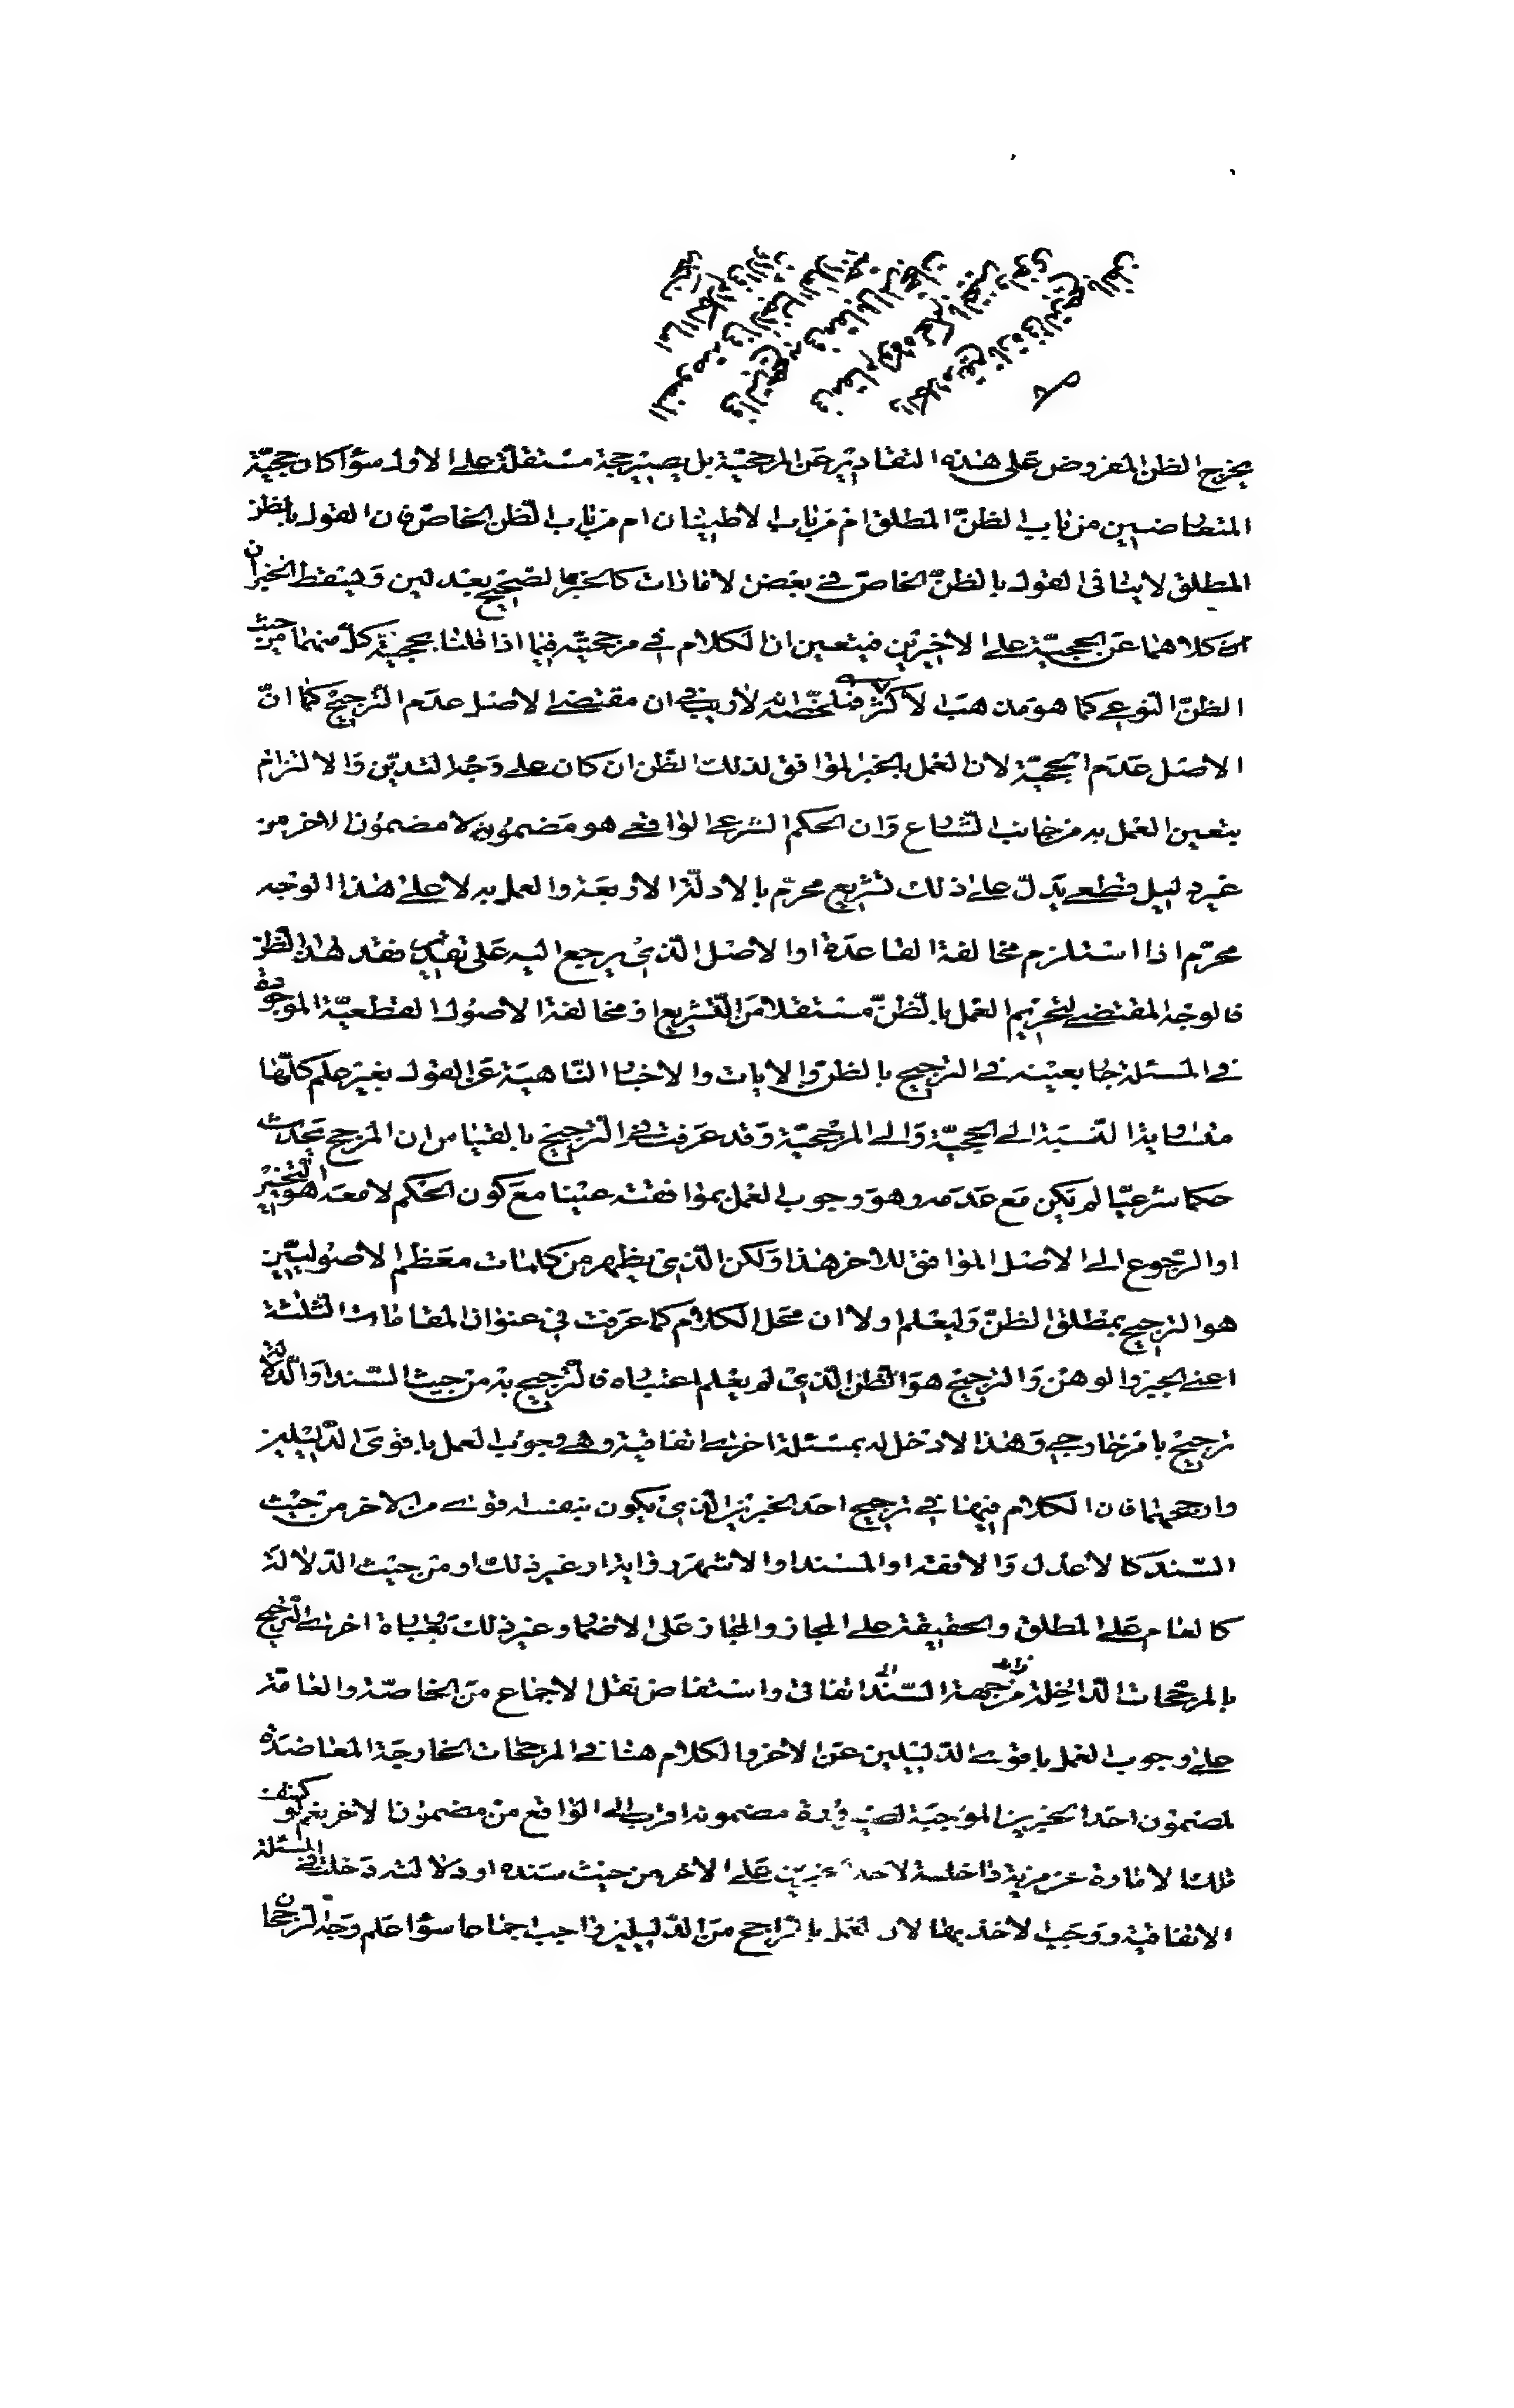 يخرج الظن المفروض على هذه التقادير عن المرجحية بل يصير حجة مستقلة على الاول سواء كان حجية
المتعاضين من باب الظن المطلق ام من باب الاطمينان ام من باب الظن الخاص فان القول بالظن
المطلق لا ينافى القول بالظن الخاص في بعض الامارات كالخبر الصحيح بعدلين ويسقط الخبران
كلاهما عن الحجية على الاخيرين فيتعين ان الكلام في مرجحيته فيما اذا قلنا بحجية كل منهما من حيث
الظن النوعي كما هو مذهب الاكثر فنلخص انه لا ريب في ان مقتضى الاصل عدم الترجيح كما ان
الاصل عدم الحجية لان العمل بالخبر الموافق لذلك الظن ان كان على وجه التدين والالتزام
بتعين العمل به من جانب الشارع وان الحكم الشرعي الواقعي هو مضمونه لا مضمون الاخر من
غير دليل قطعي يدل على ذلك تشريع محرم بالادلة الاربعة والعمل به لا على هذا الوجه
محرم اذا استلزم مخالفة القاعدة او الاصل الذي يرجع اليه على تقدير فقد هذا الظن
فالوجه المقتضي لتحريم العمل بالظن مستقلا من التشريع او مخالفة الاصول القطعية الموجودة
في المسئلة جار بعينه في الترجيح بالظن والايات والاخبار الناهية عن القول بغير علم كلها
متساوية النسبة الى الحجية والى المرجحية وقد عرفت في الترجيح بالقياس ان المرجح يحدث
حكما شرعيا لم يكن مع عدمه وهو وجوب العمل بموافقته عينا مع كون الحكم لا معه هو التخيير
او الرجوع الى الاصل الموافق للاخر هذا ولكن الذي يظهر من كلمات معظم الاصوليين
هو الترجيح بمطلق الظن وليعلم اولا ان محل الكلام كما عرفت في عنوان المقامات الثلثة
اعنى الجبر والوهن والترجيح هو الظن الذي لم يعلم اعتباره فالترجيح به من حيث السند او الدلالة
ترجيح بامر خارجي وهذا لا دخل له بمسئلة اخرى اتفاقية وهي وجوب العمل باقوى الدليلين
وارجحهما فان الكلام فيها في ترجيح احد الخبرين الذي يكون بنفسه اقوى من الاخر من حيث
السند كالاعدل والافقه او المسند او الاشهر رواية او غير ذلك او من حيث الدلالة
كالعام على المطلق والحقيقة على المجاز والمجاز على الاضمار وغير ذلك وبعبارة اخرى الترجيح
بالمرجحات الداخلة من جهة السند اتفاقى واستفاض نقل الاجماع من الخاصة والعامة
على وجوب العمل باقوى الدليلين عن الاخر والكلام هنا في المرجحات الخارجة المعاضدة
لمضمون احد الخبرين الموجبة لصيرورة مضمونه اقرب الى الواقع من مضمون الاخر نعم لو كشفت
تلك الامارة عن مزية داخلية لاحد الخبرين على الاخر من حيث سنده او دلالته دخلت في المسئلة
الاتفاقية ووجب الاخذ بها لان العمل بالراجح من الدليلين واجب اجماعا سواء علم وجه الرجحان